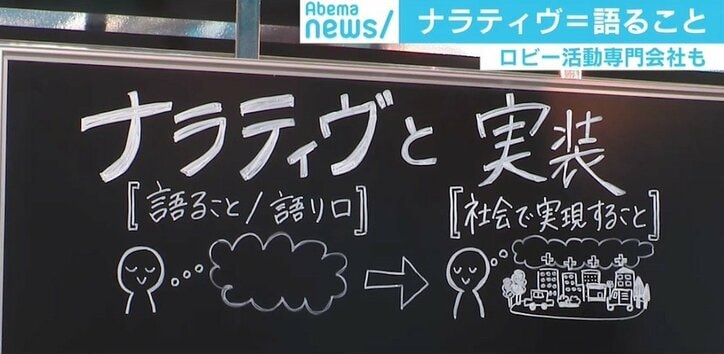 Abema
news/
ナラティヴ=語ること
ロビー活動専門会社も
ナラティヴと 実装
[語ること/語り口]
[社会で実現すること]